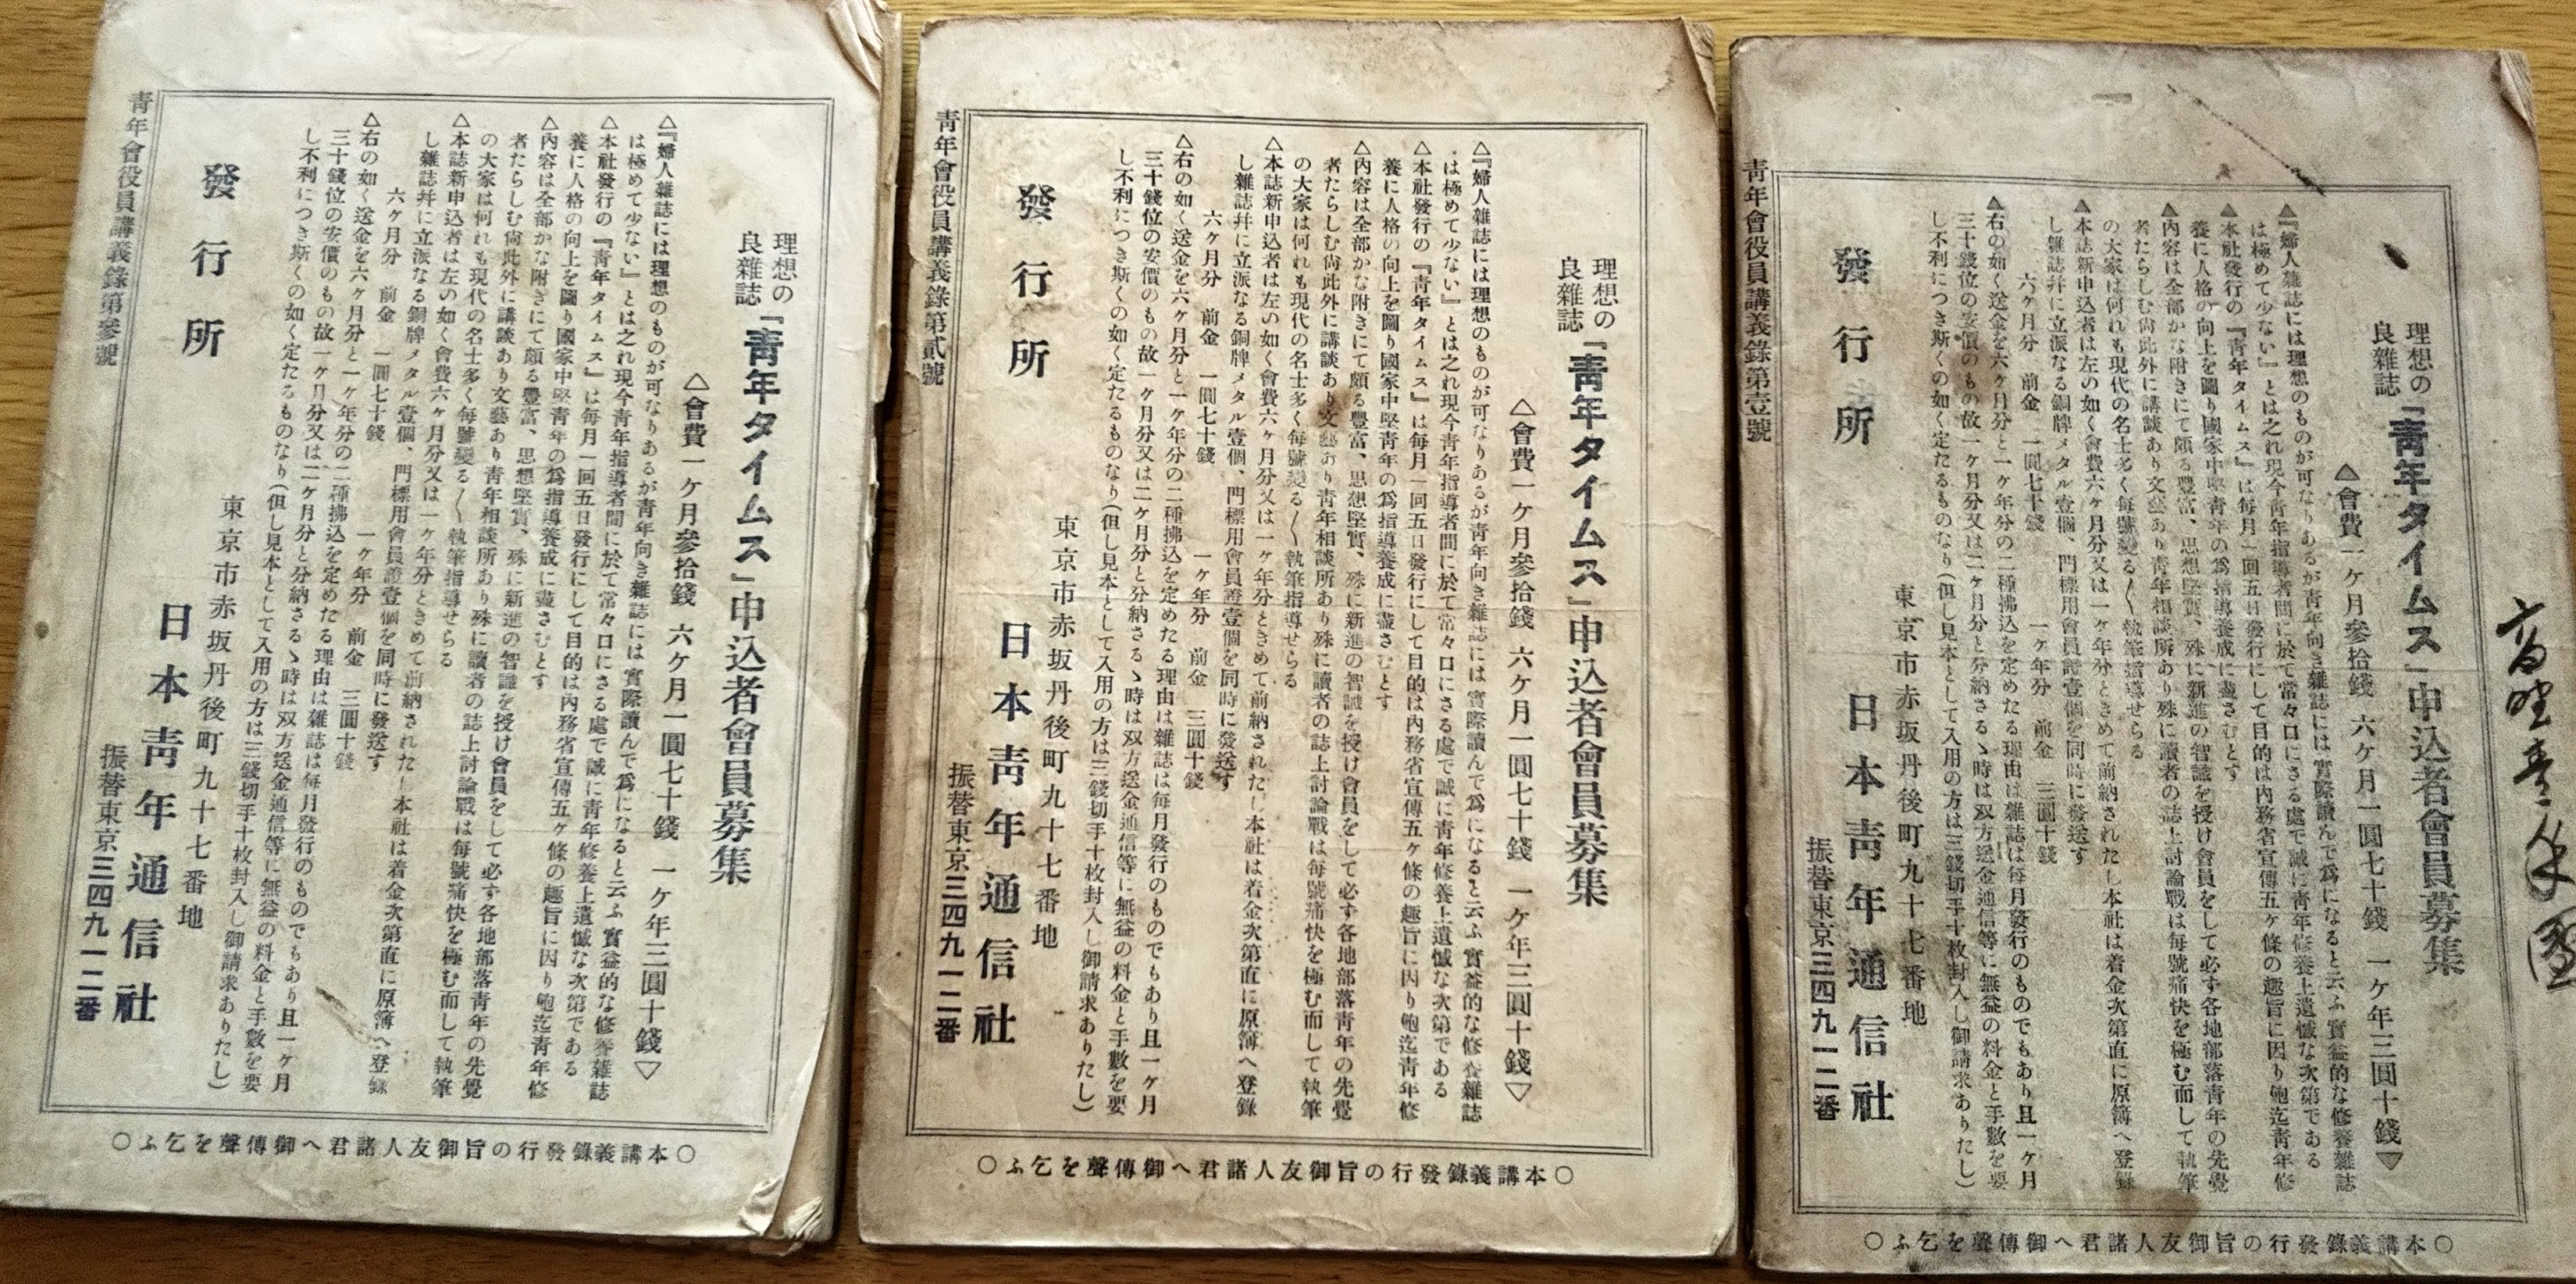 理想の
良雜誌
「靑年タイムス」申込者會員募集
△會費一ヶ月參拾錢 六ヶ月一圓七十錢 一ヶ年三圓十錢▽
△『婦人雜誌には理想のものが可なりあるが靑年向き雜誌には實際讀んで爲になると云ふ實益的な修養雜誌
は極めて少ない』とは之れ現今靑年指導者間に於て常々口にさる處で誠に靑年修養上遺憾な次第である
△本社發行の『靑年タイムス』は每月一回五日發行にして目的は內務省宣傳五ヶ條の趣旨に因り飽迄靑年修
養に人格の向上を圖り國家中堅靑年の爲指導養成に盡さむとす
△內容は全部かな附きにて頗る豐富、思想堅實、殊に新進の智識を授け會員をして必ず各地部落靑年の先覺
者たらしむ尙此外に講談あり文藝あり靑年相談所あり殊に讀者の誌上討論戰は每號痛快を極む而して執筆
の大家は何れも現代の名士多く每號變る〱執筆指導せらる
△本誌新申込者は左の如く會費六ヶ月分又は一ヶ年分ときめて前納されたし本社は着金次第直に原簿へ登錄
し雜誌幷に立派なる銅牌メタル壹個、門標用會員證壹個を同時に發送す
六ヶ月分 前金 一圓七十錢 一ヶ年分 前金 三圓十錢
△右の如く送金を六ヶ月分と一ヶ年分の二種拂込を定めたる理由は雜誌は每月發行のものでもあり且一ヶ月
三十錢位の安價のもの故一ヶ月分又は二ヶ月分と分納さるゝ時は双方送金通信等に無益の料金と手數を要
し不利につき斯くの如く定たるものなり(但し見本として入用の方は三錢切手十枚封入し御請求ありたし)
東京市赤坂丹後町九十七番地
發行所
日本靑年通信社
振替東京三四九一二番
靑年會役員講義錄第壹號
○本講義錄發行の旨御友人諸君へ御傳聲を乞ふ○
理想の
良雜誌
「靑年タイムス」申込者會員募集
△會費一ヶ月參拾錢 六ヶ月一圓七十錢 一ヶ年三圓十錢▽
△『婦人雜誌には理想のものが可なりあるが靑年向き雜誌には實際讀んで爲になると云ふ實益的な修養雜誌
は極めて少ない』とは之れ現今靑年指導者間に於て常々口にさる處で誠に靑年修養上遺憾な次第である
△本社發行の『靑年タイムス』は每月一回五日發行にして目的は內務省宣傳五ヶ條の趣旨に因り飽迄靑年修
養に人格の向上を圖り國家中堅靑年の爲指導養成に盡さむとす
△內容は全部かな附きにて頗る豐富、思想堅實、殊に新進の智識を授け會員をして必ず各地部落靑年の先覺
者たらしむ尙此外に講談あり文藝あり靑年相談所あり殊に讀者の誌上討論戰は每號痛快を極む而して執筆
の大家は何れも現代の名士多く每號變る〱執筆指導せらる
△本誌新申込者は左の如く會費六ヶ月分又は一ヶ年分ときめて前納されたし本社は着金次第直に原簿へ登錄
し雜誌幷に立派なる銅牌メタル壹個、門標用會員證壹個を同時に發送す
六ヶ月分 前金 一圓七十錢 一ヶ年分 前金 三圓十錢
△右の如く送金を六ヶ月分と一ヶ年分の二種拂込を定めたる理由は雜誌は每月發行のものでもあり且一ヶ月
三十錢位の安價のもの故一ヶ月分又は二ヶ月分と分納さるゝ時は双方送金通信等に無益の料金と手數を要
し不利につき斯くの如く定たるものなり(但し見本として入用の方は三錢切手十枚封入し御請求ありたし)
東京市赤坂丹後町九十七番地
發行所
日本靑年通信社
振替東京三四九一二番
靑年會役員講義錄第貳號
○本講義錄發行の旨御友人諸君へ御傳聲を乞ふ○
理想の
良雜誌
「靑年タイムス」申込者會員募集
△會費一ヶ月參拾錢 六ヶ月一圓七十錢 一ヶ年三圓十錢▽
△『婦人雜誌には理想のものが可なりあるが靑年向き雜誌には實際讀んで爲になると云ふ實益的な修養雜誌
は極めて少ない』とは之れ現今靑年指導者間に於て常々口にさる處で誠に靑年修養上遺憾な次第である
△本社發行の『靑年タイムス』は每月一回五日發行にして目的は內務省宣傳五ヶ條の趣旨に因り飽迄靑年修
養に人格の向上を圖り國家中堅靑年の爲指導養成に盡さむとす
△內容は全部かな附きにて頗る豐富、思想堅實、殊に新進の智識を授け會員をして必ず各地部落靑年の先覺
者たらしむ尙此外に講談あり文藝あり靑年相談所あり殊に讀者の誌上討論戰は每號痛快を極む而して執筆
の大家は何れも現代の名士多く每號變る〱執筆指導せらる
△本誌新申込者は左の如く會費六ヶ月分又は一ヶ年分ときめて前納されたし本社は着金次第直に原簿へ登錄
し雜誌幷に立派なる銅牌メタル壹個、門標用會員證壹個を同時に發送す
六ヶ月分 前金 一圓七十錢 一ヶ年分 前金 三圓十錢
△右の如く送金を六ヶ月分と一ヶ年分の二種拂込を定めたる理由は雜誌は每月發行のものでもあり且一ヶ月
三十錢位の安價のもの故一ヶ月分又は二ヶ月分と分納さるゝ時は双方送金通信等に無益の料金と手數を要
し不利につき斯くの如く定たるものなり(但し見本として入用の方は三錢切手十枚封入し御請求ありたし)
東京市赤坂丹後町九十七番地
發行所
日本靑年通信社
振替東京三四九一二番
靑年會役員講義錄第參號
○本講義錄發行の旨御友人諸君へ御傳聲を乞ふ○